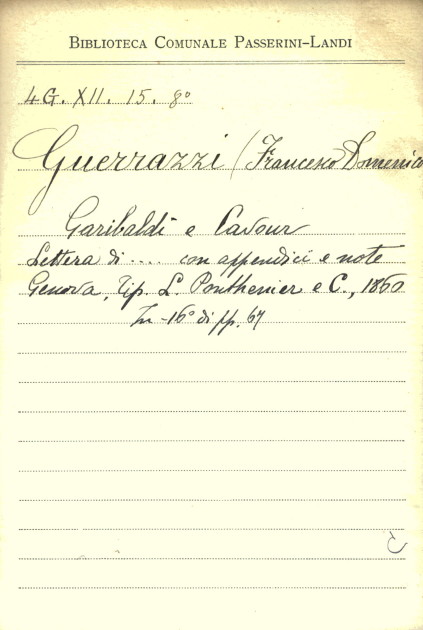 BIBLIOTECA COMUNALE PASSERINI-LANDI
4G. XII. 15. 8º
Guerrazzi (Francesco Domenico
Garibaldi e Cavour
Lettera di .... con appendici e note
Genova, Tip. L. Ponthenier e C., 1860
In-16º di pp. 67